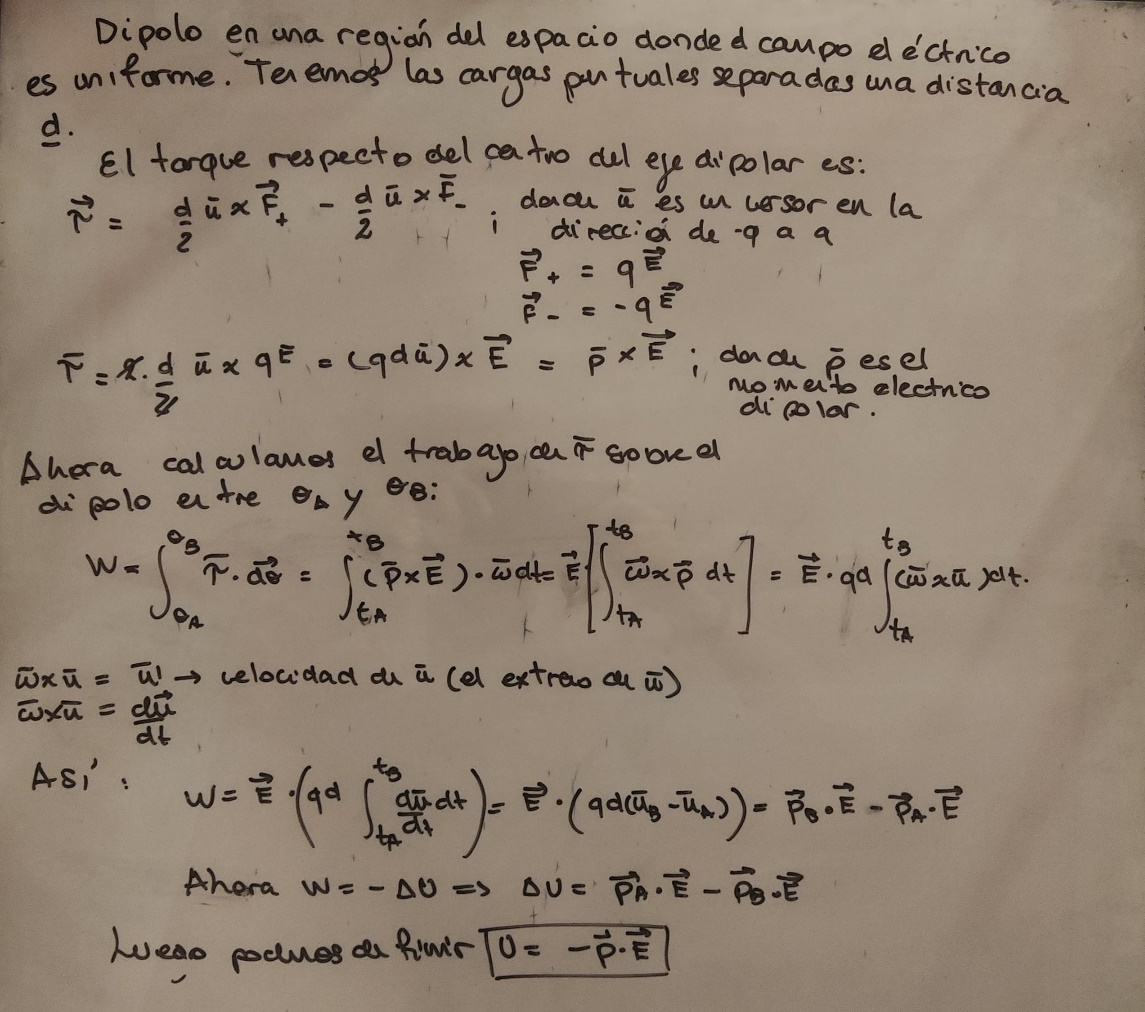 Dipolo en una región del espacio donde el campo eléctrico
es uniforme. Tenemos las cargas puntuales separadas una distancia
d.
El torque respecto del centro del eje dipolar es:
τ⃗ = d/2 ū × F⃗₊ - d/2 ū × F̄₋ ; donde ū es un versor en la
dirección de -q a q
F⃗₊ = qE⃗
F⃗₋ = -qE⃗
τ̄ = 2. d/2 ū × qĒ = (qdū) × E⃗ = p̄ × E⃗ ; donde p̄ es el
momento electrico
dipolar.
Ahora calculamos el trabajo de τ̄ sobre el
dipolo entre θ_A y θ_B:
W = ∫_{θ_A}^{θ_B} τ̄ · dθ⃗ = ∫_{t_A}^{t_B} (p̄ × E⃗) · ω̄ dt = E⃗ · [∫_{t_A}^{t_B} ω̄ × p̄ dt] = E⃗ · qd ∫_{t_A}^{t_B} (ω̄ × ū) dt.
ω̄ × ū = ū' → velocidad de ū (el extremo de ū)
ω̄ × ū = dū/dt
Así :
W = E⃗ · (qd ∫_{t_A}^{t_B} dū/dt dt) = E⃗ · (qd(ū_B - ū_A)) = p⃗_B · E⃗ - p⃗_A · E⃗
Ahora W = -ΔU => ΔU = p⃗_A · E⃗ - p⃗_B · E⃗
Luego podemos definir U = -p⃗ · E⃗